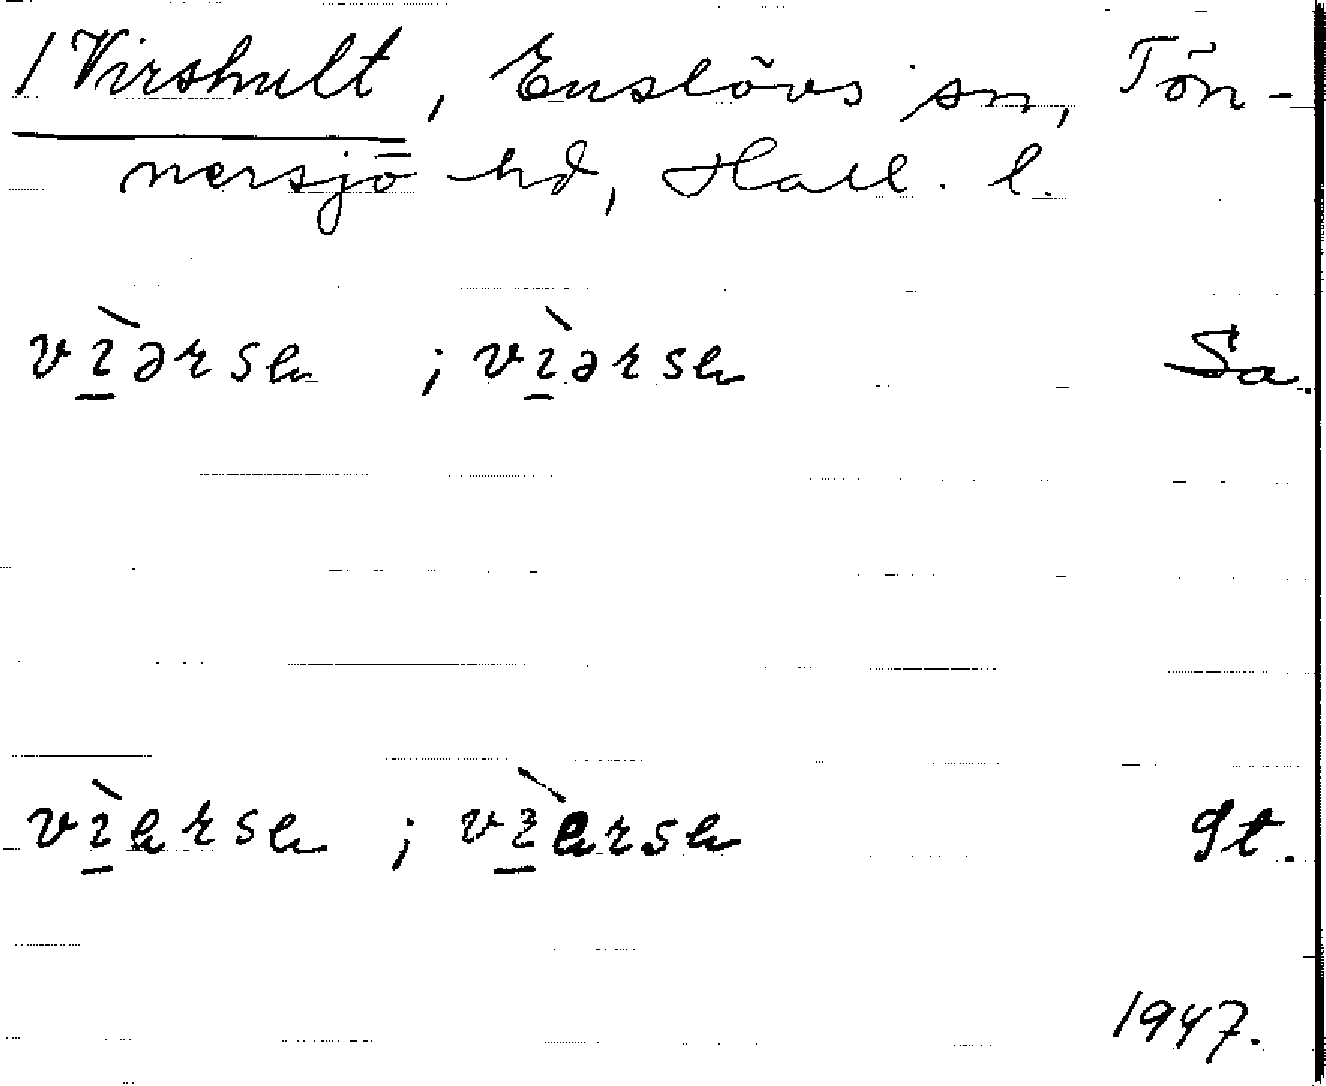 /Virshult, Enslövs sn, Tön-
nersjö hd, Hall. l.
vìərsa ; vìərsa Sa.
vìarsa ; vìarsa St.
1947.